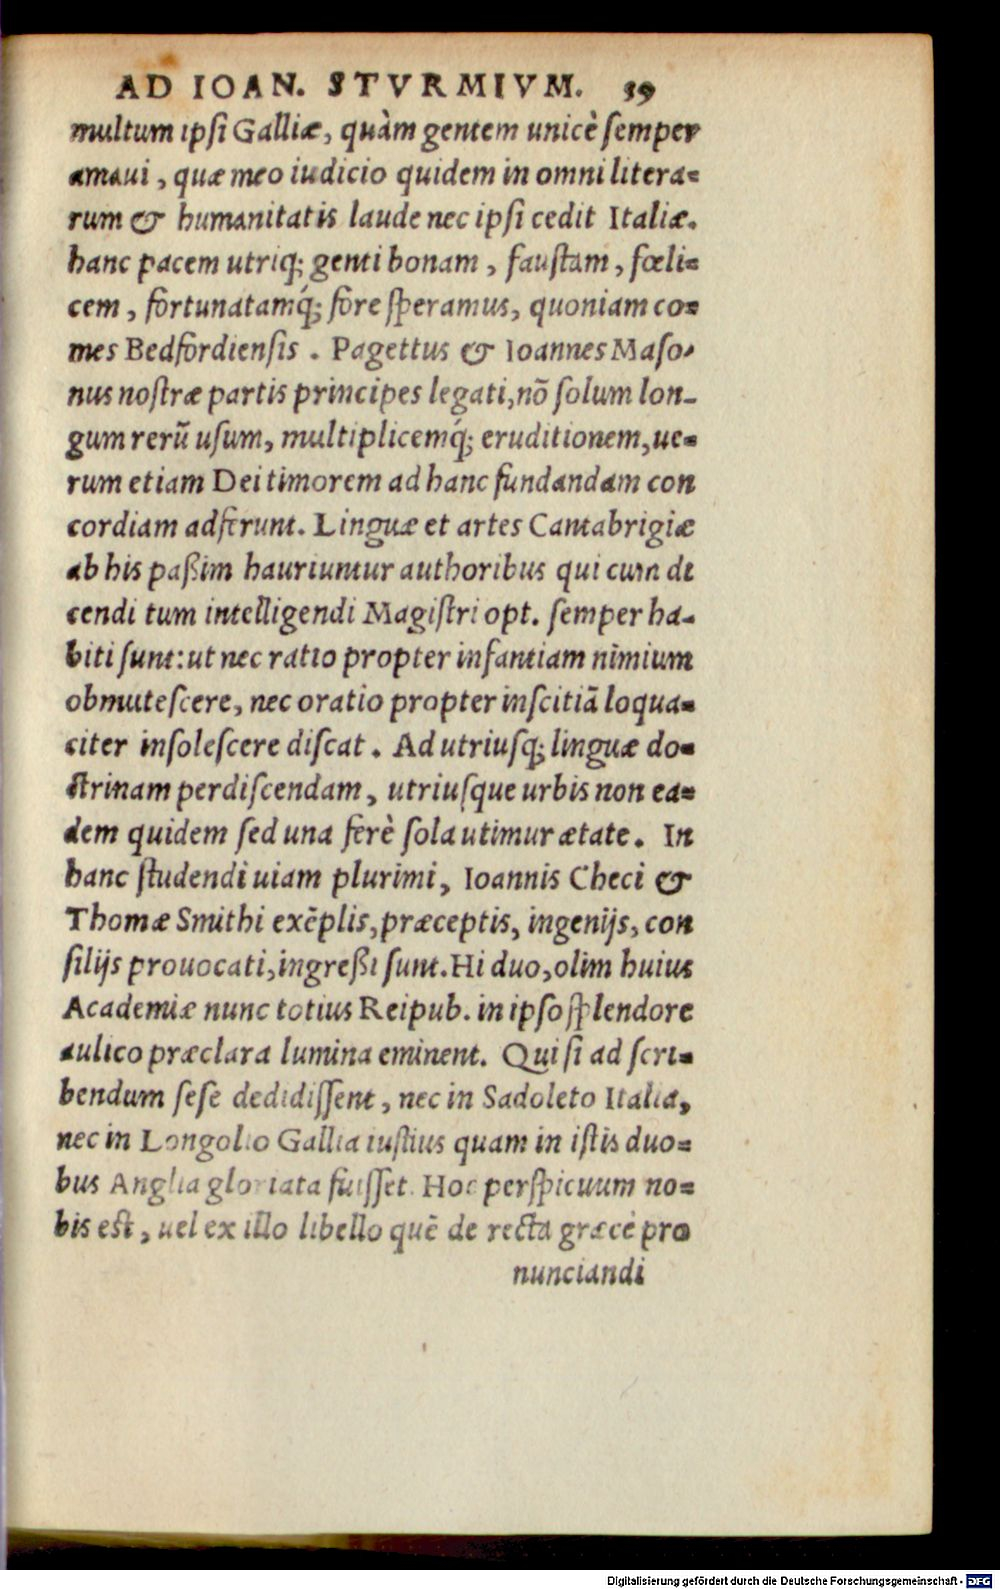 AD IOAN. STVRMIVM. 39
multum ipsi Galliæ, quàm gentem unicè semper
amaui, quæ meo iudicio quidem in omni litera=
rum & humanitatis laude nec ipsi cedit Italiæ.
hanc pacem utriq; genti bonam, faustam, fœli=
cem, fortunatamq́; fore speramus, quoniam co=
mes Bedfordiensis. Pagettus & Ioannes Maso-
nus nostræ partis principes legati, nõ solum lon-
gum rerũ usum, multiplicemq́; eruditionem, ue=
rum etiam Dei timorem ad hanc fundandam con
cordiam adferunt. Linguæ et artes Cantabrigiæ
ab his paßim hauriuntur authoribus qui cum di
cendi tum intelligendi Magistri opt. semper ha-
biti sunt: ut nec ratio propter infantiam nimium
obmutescere, nec oratio propter inscitiã loqua=
citer insolescere discat. Ad utriusq; linguæ do=
ctrinam perdiscendam, utriusque urbis non ea=
dem quidem sed una ferè sola utimur ætate. In
hanc studendi uiam plurimi, Ioannis Checi &
Thomæ Smithi exẽplis, præceptis, ingenijs, con
silijs prouocati, ingreßi sunt. Hi duo, olim huius
Academiæ nunc totius Reipub. in ipso splendore
aulico præclara lumina eminent. Qui si ad scri=
bendum sese dedidissent, nec in Sadoleto Italia,
nec in Longolio Gallia iustius quam in istis duo=
bus Anglia gloriata fuisset. Hoc perspicuum no=
bis est, uel ex illo libello quẽ de recta græcè pro
nunciandi
Digitalisierung gefördert durch die Deutsche Forschungsgemeinschaft - DFG